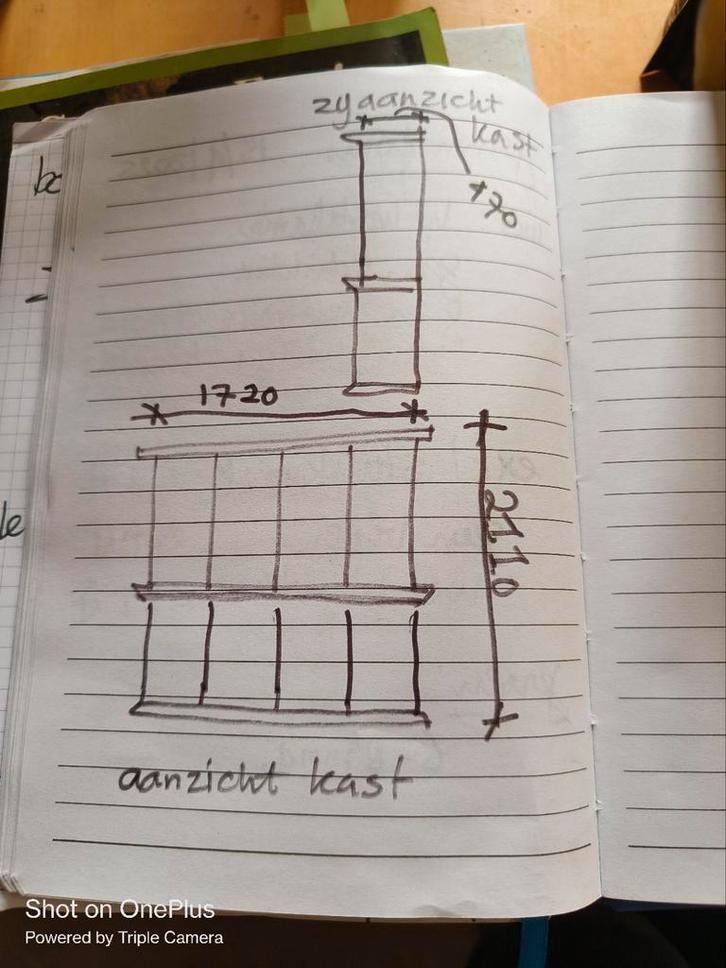 zyaanzicht
kast
1720
2110
aanzicht kast
Shot on OnePlus
Powered by Triple Camera